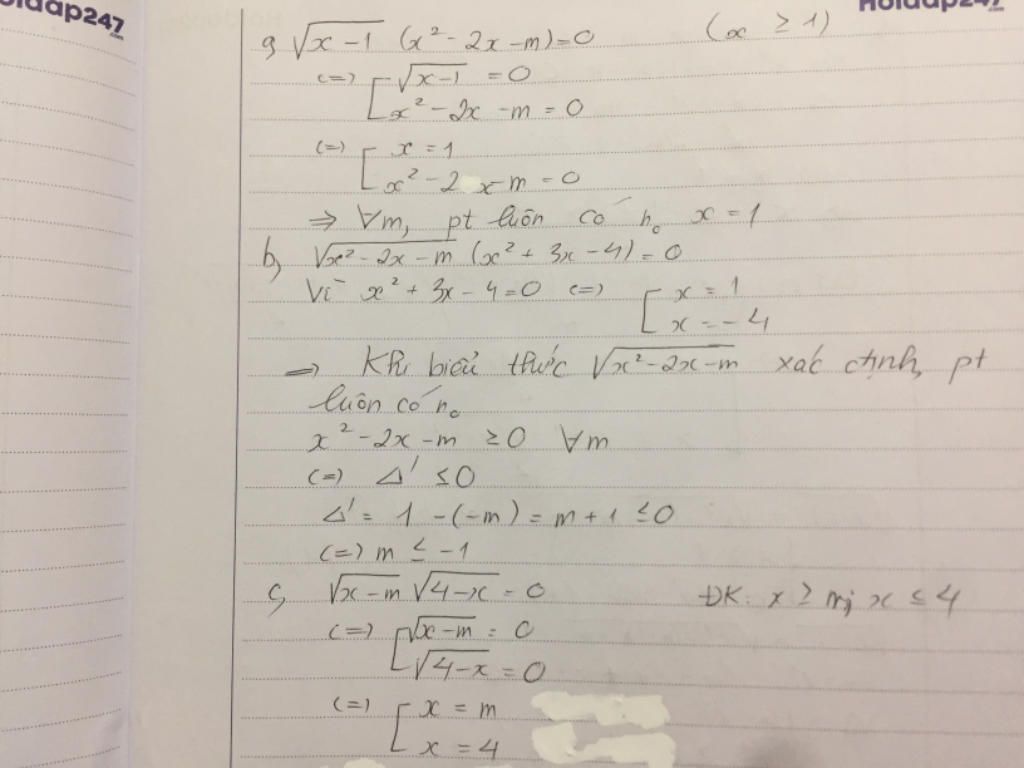 Hoidap247
.com
Hoidap247
a, √(x-1) (x² - 2x - m) = 0 (x ≥ 1)
(=) [ √(x-1) = 0
x² - 2x - m = 0
(=) [ x = 1
x² - 2x - m = 0
⇒ ∀m, pt luôn có n₀ x = 1
b, √(x² - 2x - m) (x² + 3x - 4) = 0
Vì x² + 3x - 4 = 0 (=) [ x = 1
x = -4
⇒ Khi biểu thức √(x² - 2x - m) xác định, pt
luôn có n₀
x² - 2x - m ≥ 0 ∀m
(=) Δ' ≤ 0
Δ' = 1 - (-m) = m + 1 ≤ 0
(=) m ≤ -1
c, √(x-m) √(4-x) = 0 ĐK: x ≥ m; x ≤ 4
(=) [ √(x-m) = 0
√(4-x) = 0
(=) [ x = m
x = 4